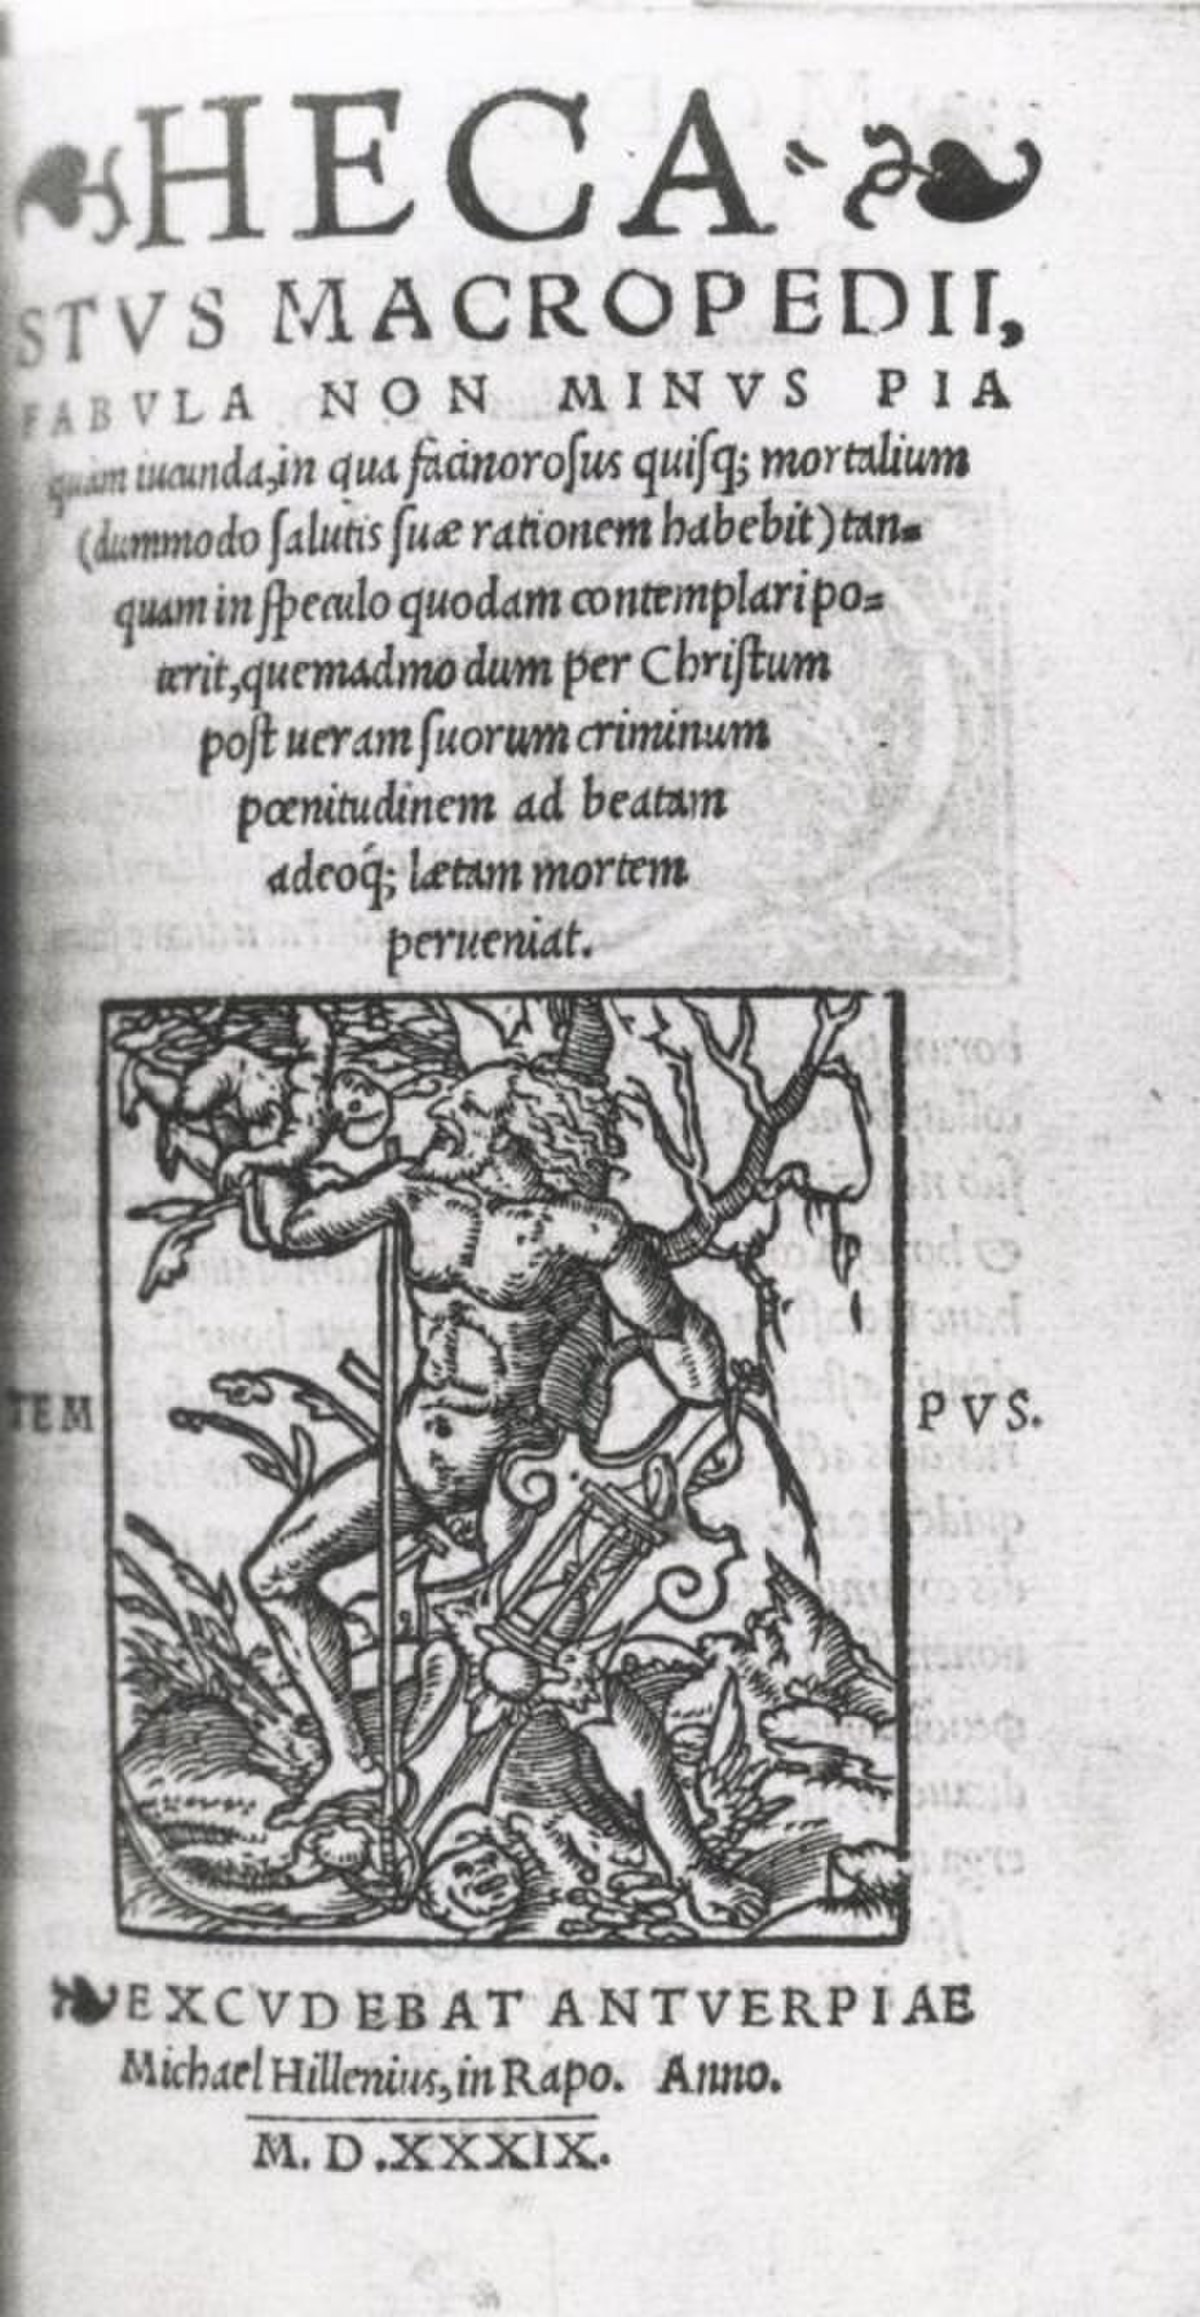 HECA-
STVS MACROPEDII,
FABVLA NON MINVS PIA
quàm iucunda,in qua facinoroſus quiſq; mortalium
(dummodo ſalutis ſuæ rationem habebit) tan-
quam in ſpeculo quodam contemplari po-
terit,quemadmodum per Chriſtum
poſt ueram ſuorum criminum
pœnitudinem ad beatam
adeoq́; lætam mortem
perueniat.
TEM PVS.
EXCVDEBAT ANTVERPIAE
Michael Hillenius, in Rapo. Anno.
M. D .XXXIX.